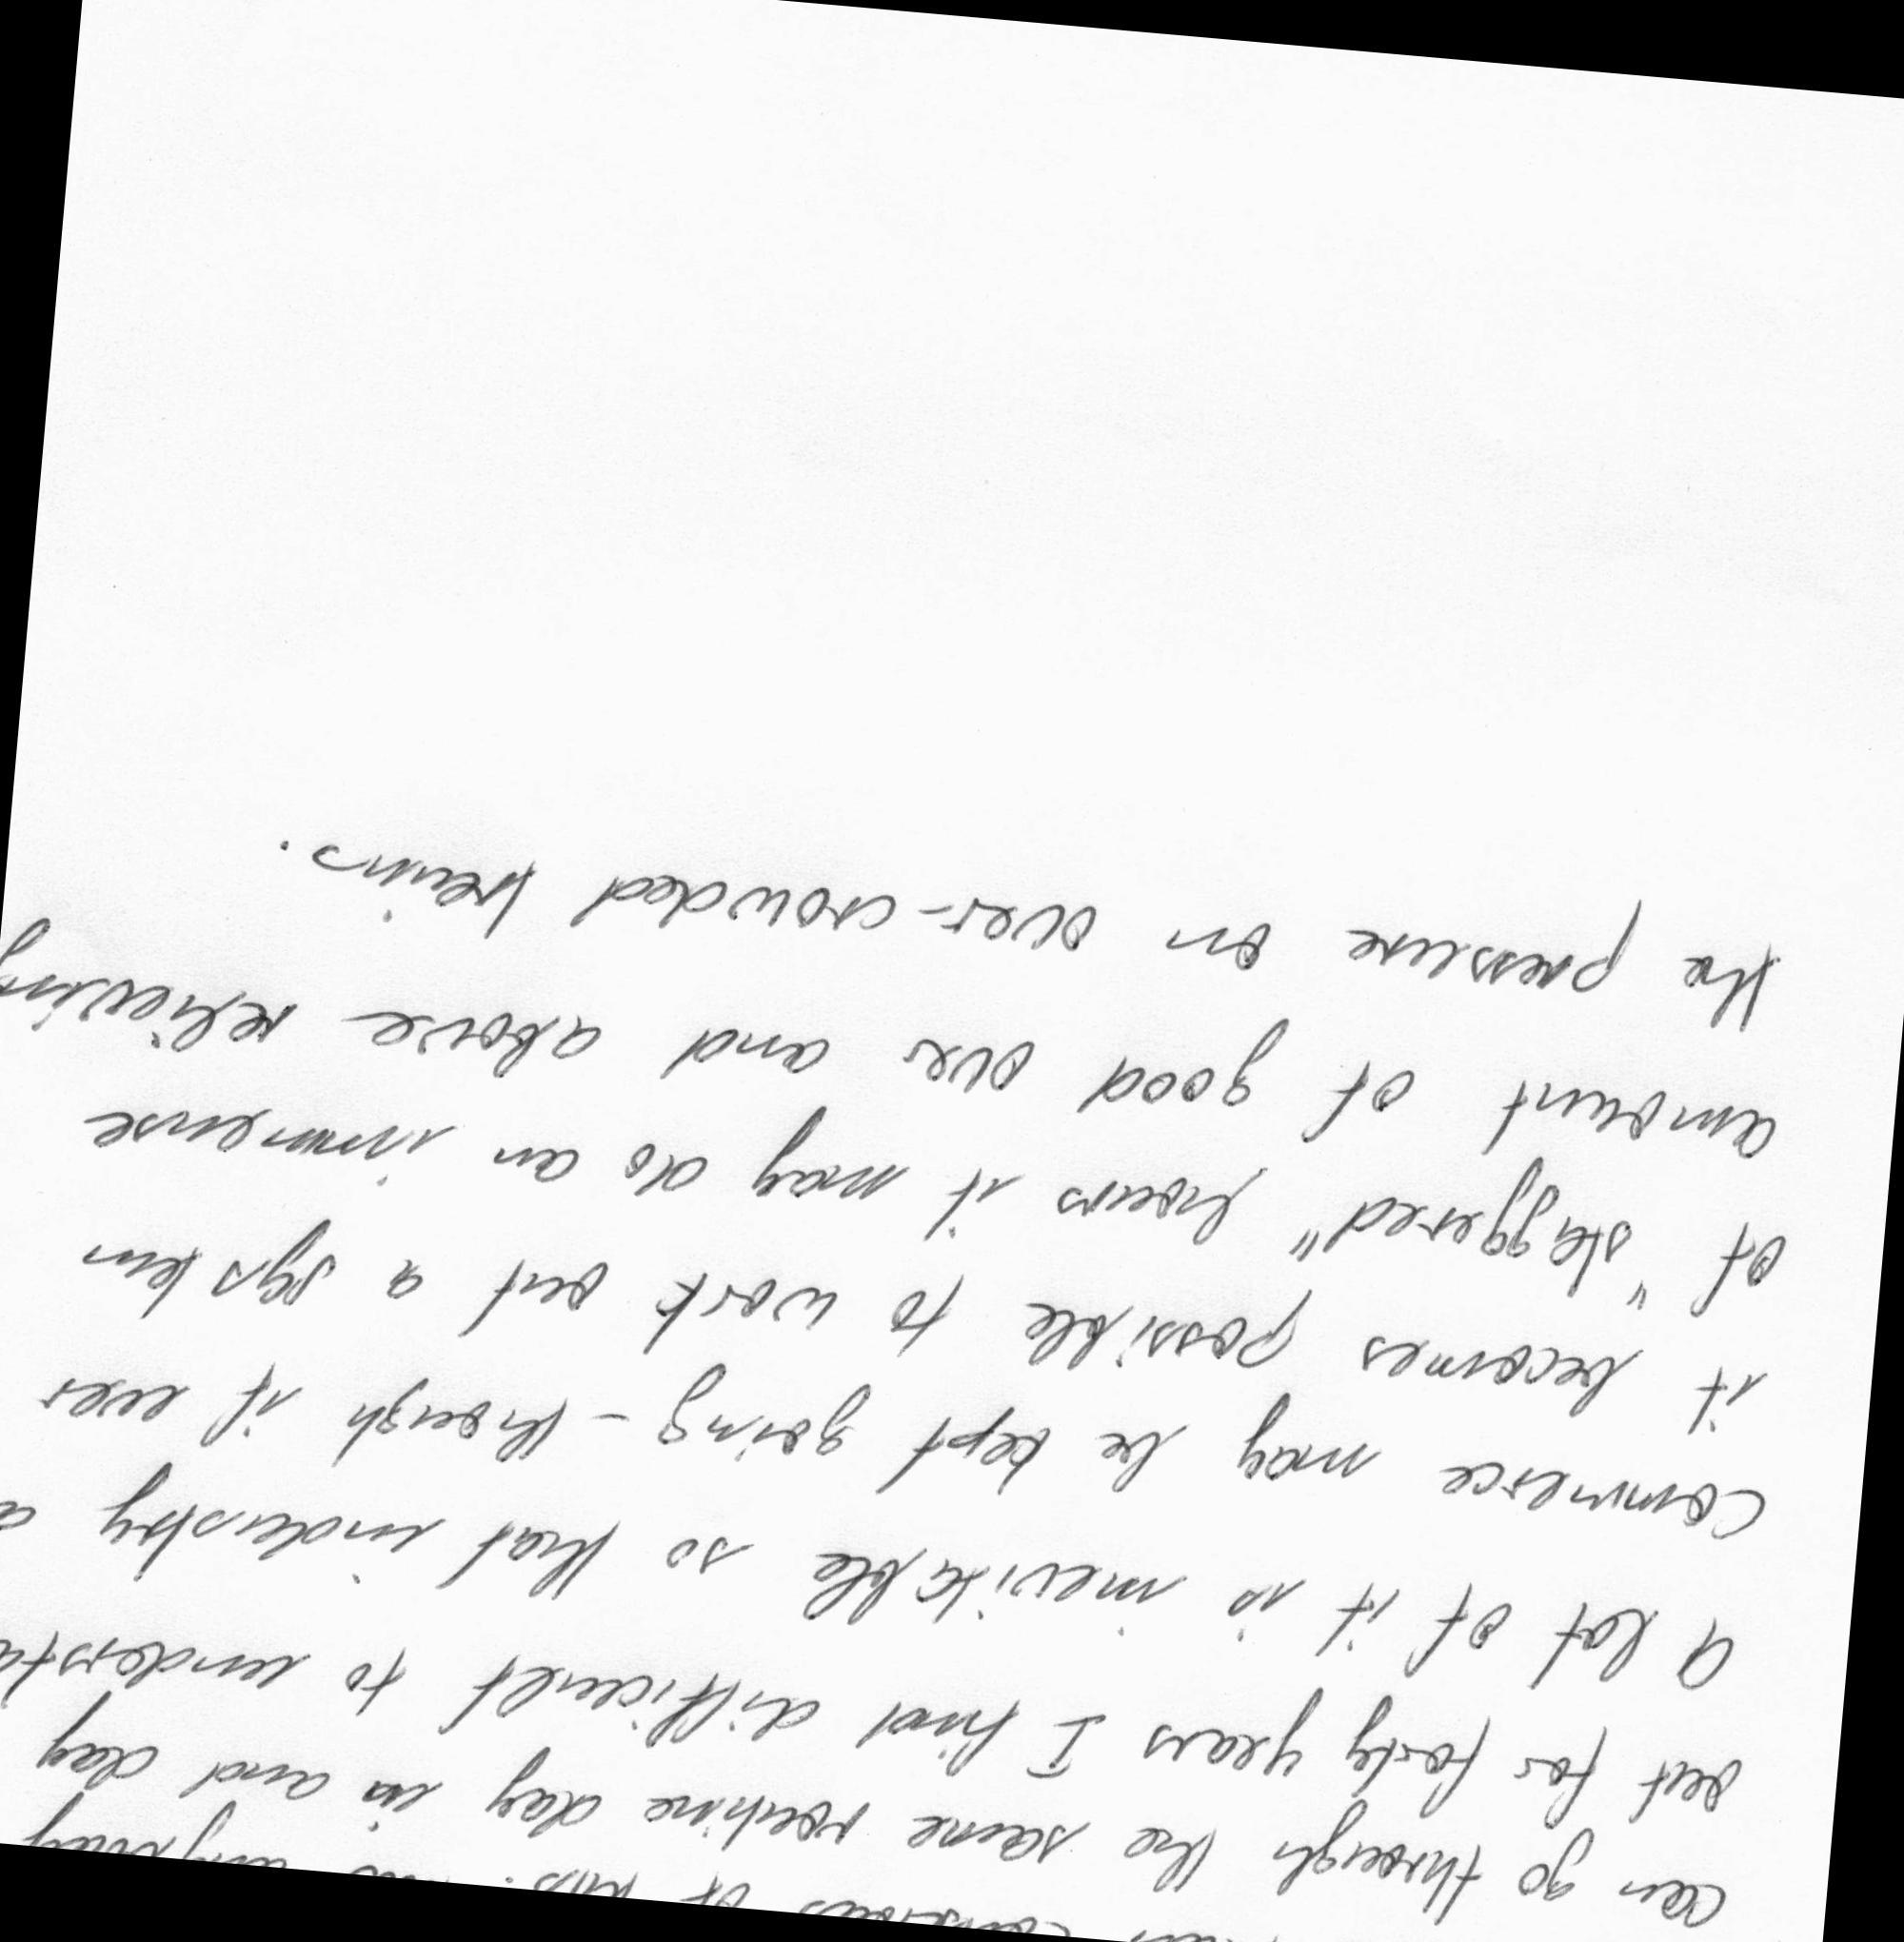 of this.
can go through the same routine day in and day
out for forty years I find difficult to
A lot of it is inevitable so that industry
commerce may be kept going - though if ever
it becomes possible to work out a system
of "staggered" hours it may do an immense
amount of good over and above relieving
the pressure on over-crowded trains.